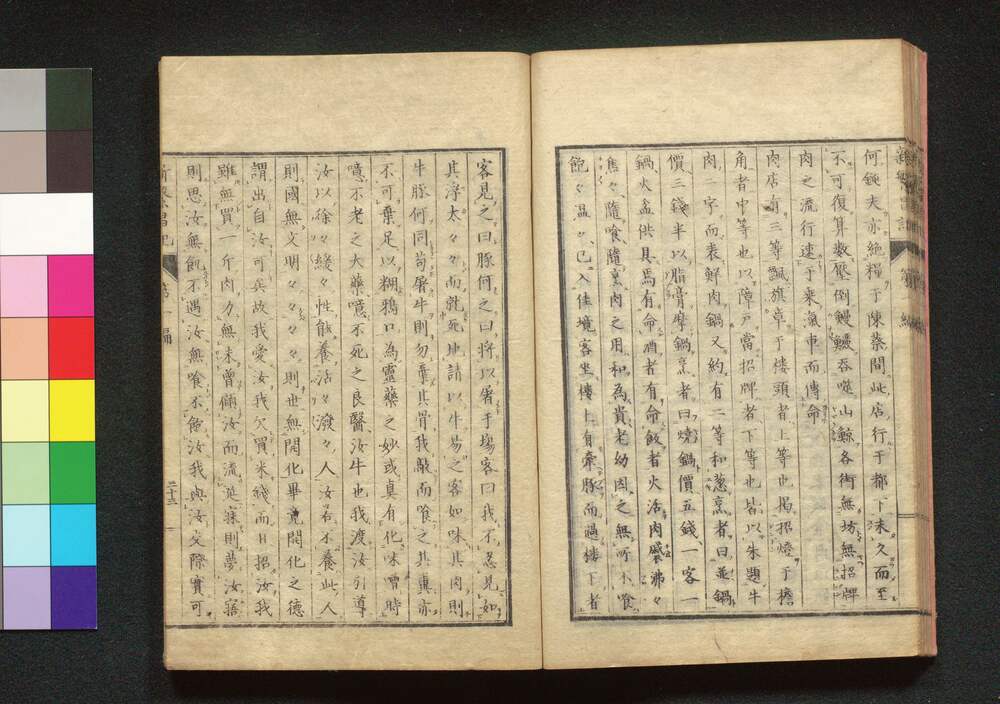 何鈍夫亦絶糧于陳蔡間此店行于都下未久而至
不可復算數壓倒鰻鱺吞噬山鯨各街無坊無招牌
肉之流行速于乘滊車而傳命
肉店有三等飄旗章于樓頭者上等也掲招燈于檐
角者中等也以障戸當招牌者下等也皆以朱題牛
肉二字而表鮮肉鍋又約有二等和葱烹者曰並鍋
價三錢半以脂膏摩鍋烹者曰燒鍋價五錢一客一
鍋火盆供具焉有命酒者有命飯者火活肉沸々
焦々隨喰隨烹肉之用和為貴老幼因之無所不喰
飽々温々已入佳境客坐樓上有牽豚而過樓下者
客見之曰豚何之曰將以屠于場客曰我不忍見如
其浮太々々而就死地請以牛易之客如味其肉則
牛豚何同苟屠牛則勿棄其骨我敲而喰之其糞亦
不可棄足以糊鴉口為靈藥之妙或臭有化味曾時
噫不老之大藥噫不死之良醫汝牛也我渡汝引導
汝以徐々緩々性能養活々潑々人汝若不養此人
則國無文明々々々々則世無開化畢竟開化之德
謂出自汝可矣故我愛汝我欠買米錢而日招汝我
雖無買一斤肉力無未曾倆汝而流涎寐則夢汝寤
則思汝無飢不遇汝無喰不飽汝我與汝交際實可
新繁昌記
第一編
二十三